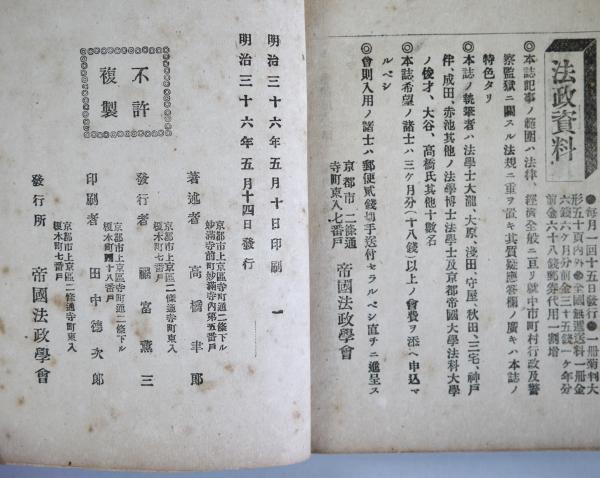 法政資料
●每月一回十五日發行●一册菊判大
形五十頁內外●全國無遞送料一册金
六錢六ケ月分前金三十五錢一ケ年分
前金六十八錢郵券代用一割增
◎本誌記事ノ範圍ハ法律、經濟全般ニ亘リ就中市町村行政及警
察監獄ニ關スル法規ニ重ヲ置キ其質疑應答欄ノ廣キハ本誌ノ
特色タリ
◎本誌ノ執筆者ハ法學士大瀧、大原、淺田、守屋、秋田、三宅、神戸
伴、成田、赤池其他ノ法學博士法學士及京都帝國大學法科大學
ノ俊才、大谷、高橋氏其他十數名
◎本誌希望ノ諸士ハ三ケ月分(十八錢)以上ノ會費ヲ添ヘ申込マ
ルベシ
◎會則入用ノ諸士ハ郵便貳錢切手送付セラルベシ直チニ進呈ス
京都市二條通
寺町東入七番戸
帝國法政學會
明治三十六年五月十日印刷
明治三十六年五月十四日發行
不許
複製
京都市上京區寺町通二條下ル
妙滿寺前町妙滿寺內第五番戸
著述者 高橋

郎
京都市上京區二條通寺町東入
榎木町七番戸
發行者 福富薫三
京都市上京區寺町通二條下ル
榎木町四十八番戸
印刷者 田中德次郎
京都市上京區二條通寺町東入
榎木町七番戸
發行所 帝國法政學會